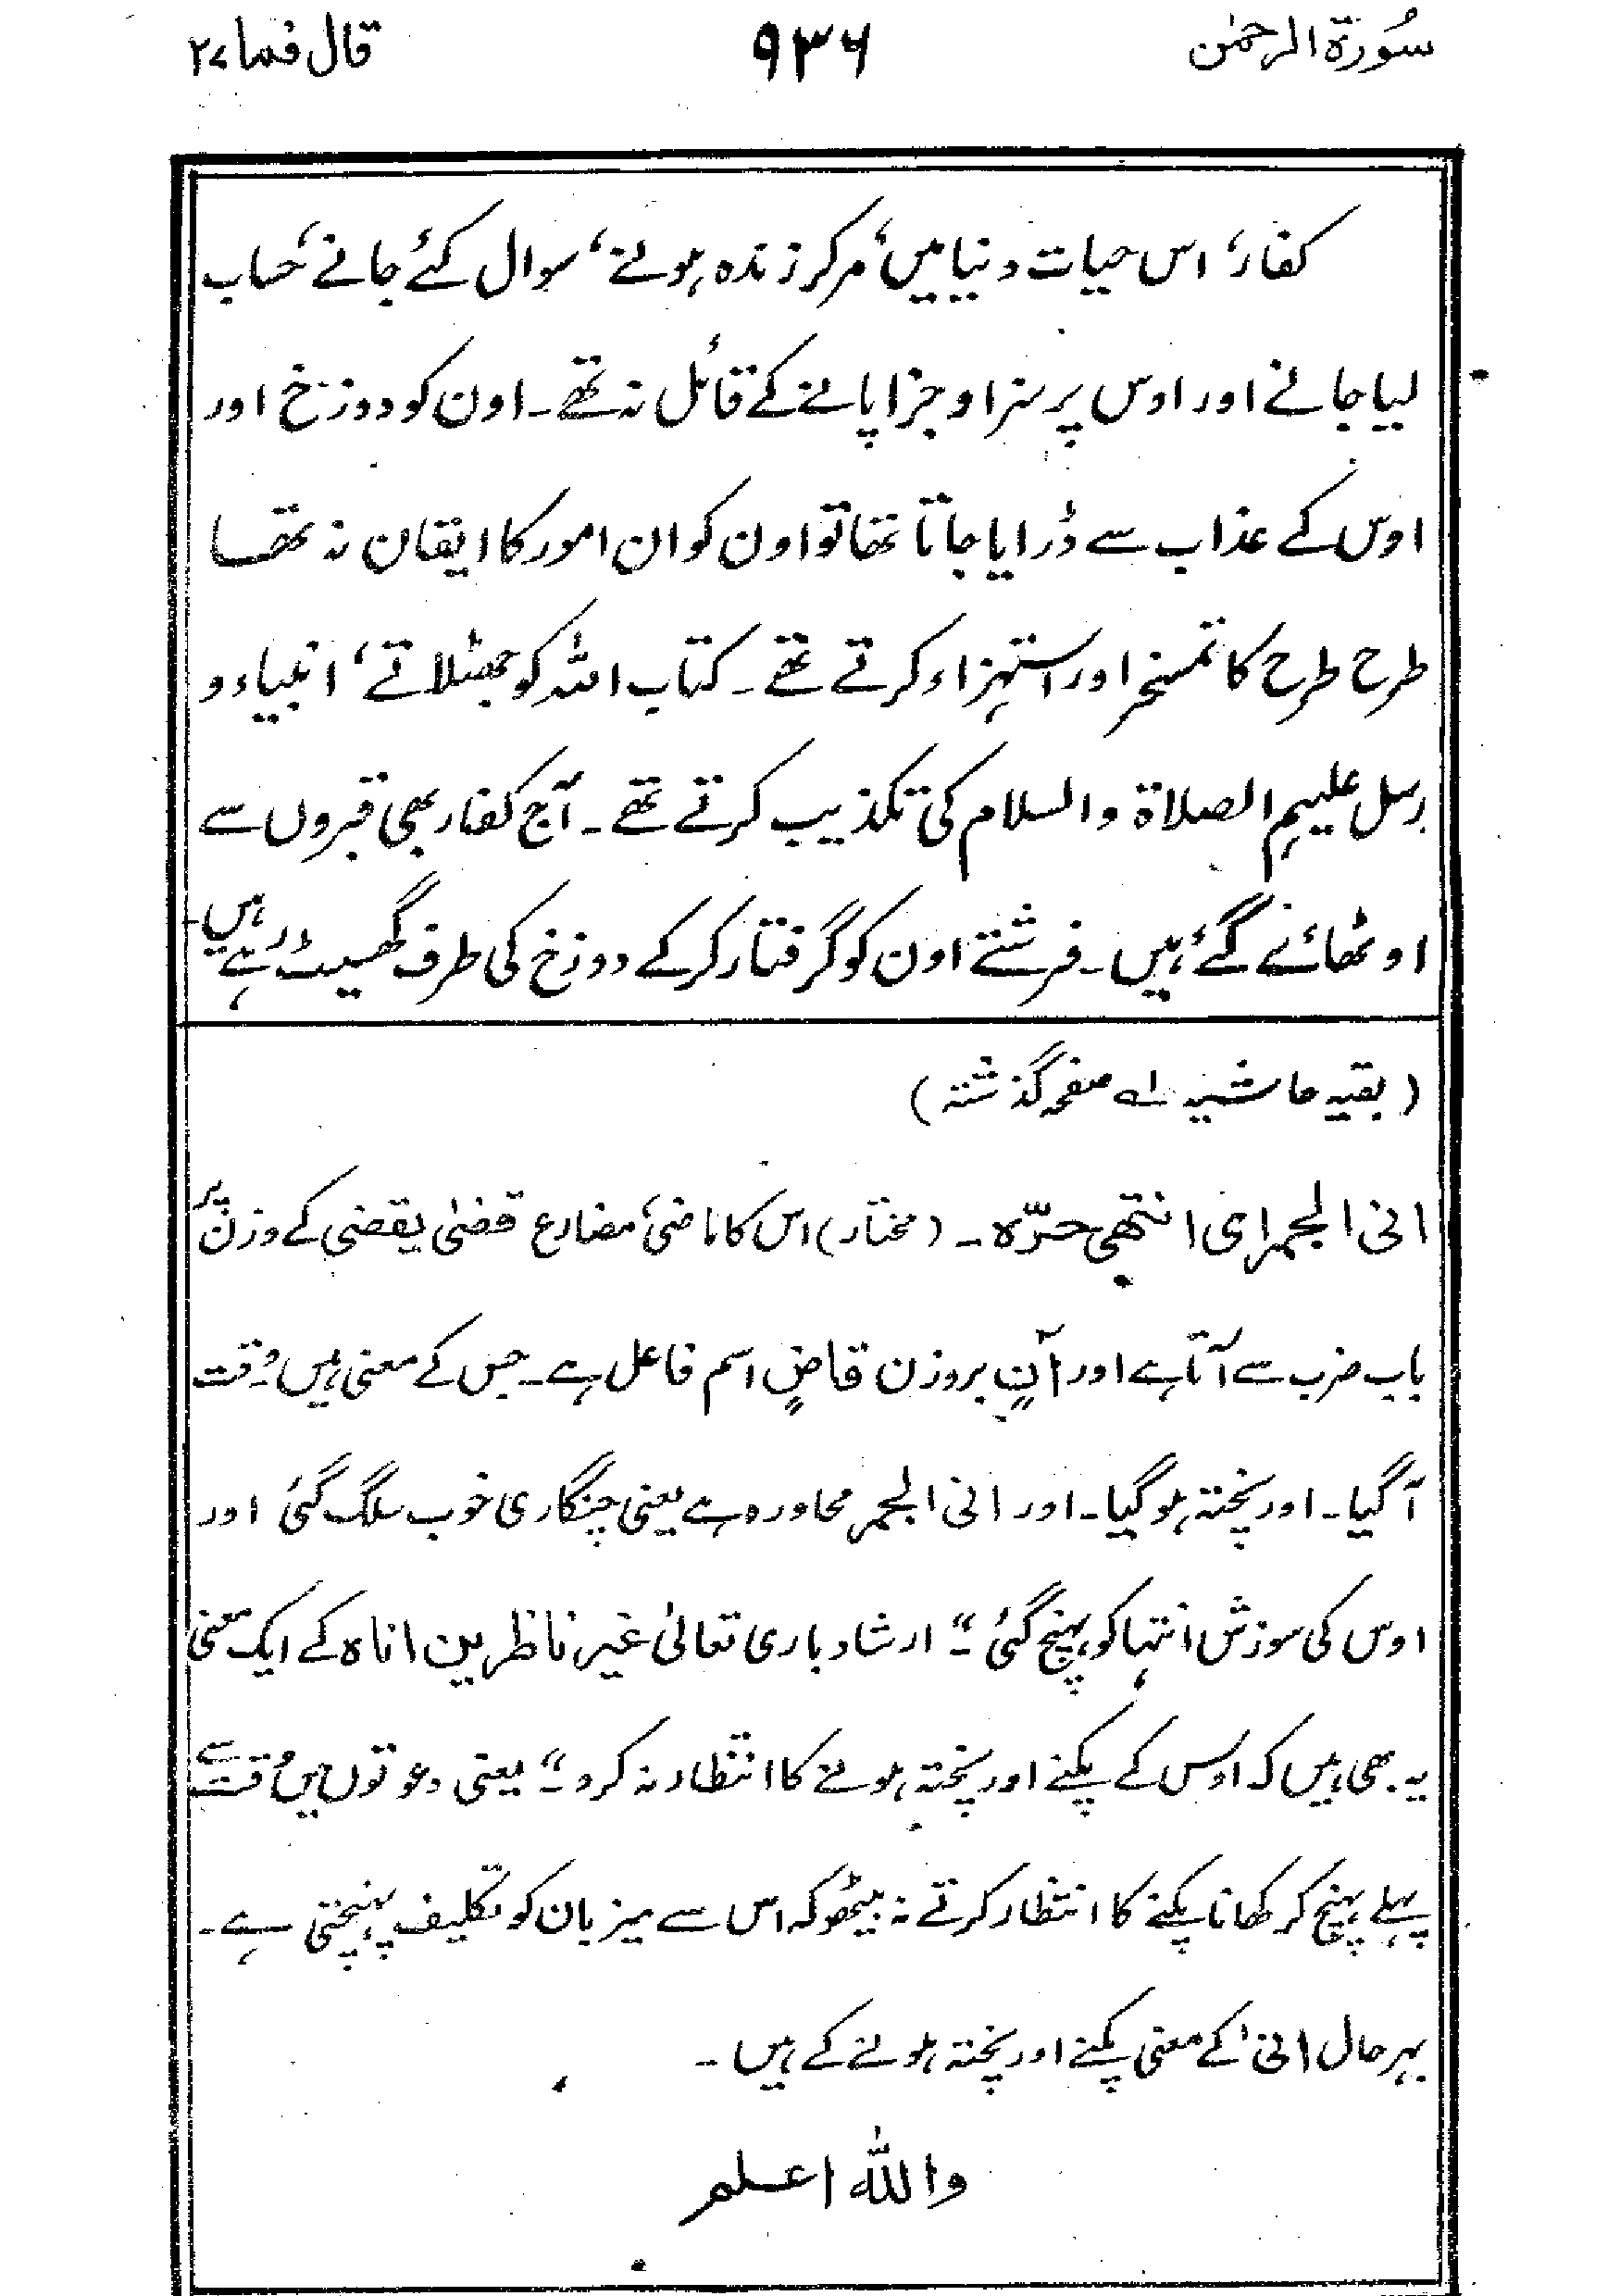 سُورۃ الرحمٰن ۹۳۶ قال فما ۲۷
کفار، اس حیات دنیا میں، مرکر زندہ ہونے، سوال کئے جانے، حساب
لیا جانے اور اوس پر سزا و جزا پانے کے قائل نہ تھے۔ اون کو دوزخ اور
اوس کے عذاب سے ڈرایا جاتا تھا تو اون کو ان امور کا ایقان نہ تھا
طرح طرح کا تمسخر اور استہزاء کرتے تھے۔ کتاب اللہ کو جھٹلاتے، انبیاء و
رسل علیہم الصلاۃ والسلام کی تکذیب کرتے تھے۔ آج کفار بھی قبروں سے
اوٹھائے گئے ہیں۔ فرشتے اون کو گرفتار کرکے دوزخ کی طرف گھسیٹ رہے ہیں۔
(بقیہ حاشیہ ۱؎ صفحہ گذشتہ)
انی الجمر ای انتھی حرّہ۔ (مختار) اس کا ماضی، مضارع قضیٰ یقضی کے وزن پر
باب ضرب سے آتا ہے اور آنٍ بروزن قاضٍ اسم فاعل ہے۔ جس کے معنی ہیں وقت
آگیا۔ اور پختہ ہوگیا۔ اور انی الجمر محاورہ ہے یعنی چنگاری خوب سلگ گئی اور
اوس کی سوزش انتہا کو پہنچ گئی ؔ" ارشاد باری تعالیٰ غیر ناظرین اناہ کے ایک معنی
یہ بھی ہیں کہ اوس کے پکنے اور پختہ ہونے کا انتظار نہ کرو۔" یعنی دعوتوں میں وقت سے
پہلے پہنچ کر کھانا پکنے کا انتظار کرتے نہ بیٹھو کہ اس سے میزبان کو تکلیف پہنچتی ہے۔
بہرحال انیٰ کے معنی پکنے اور پختہ ہونے کے ہیں۔
واللہ اعلم